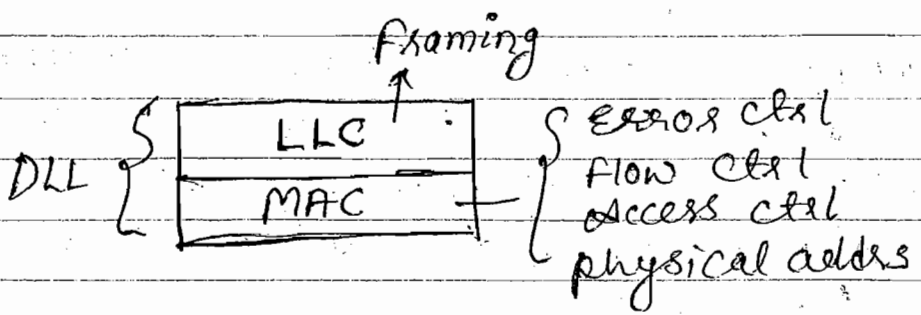 Framing
LLC
DLL
MAC
Error ctrl
Flow ctrl
Access ctrl
physical addrs